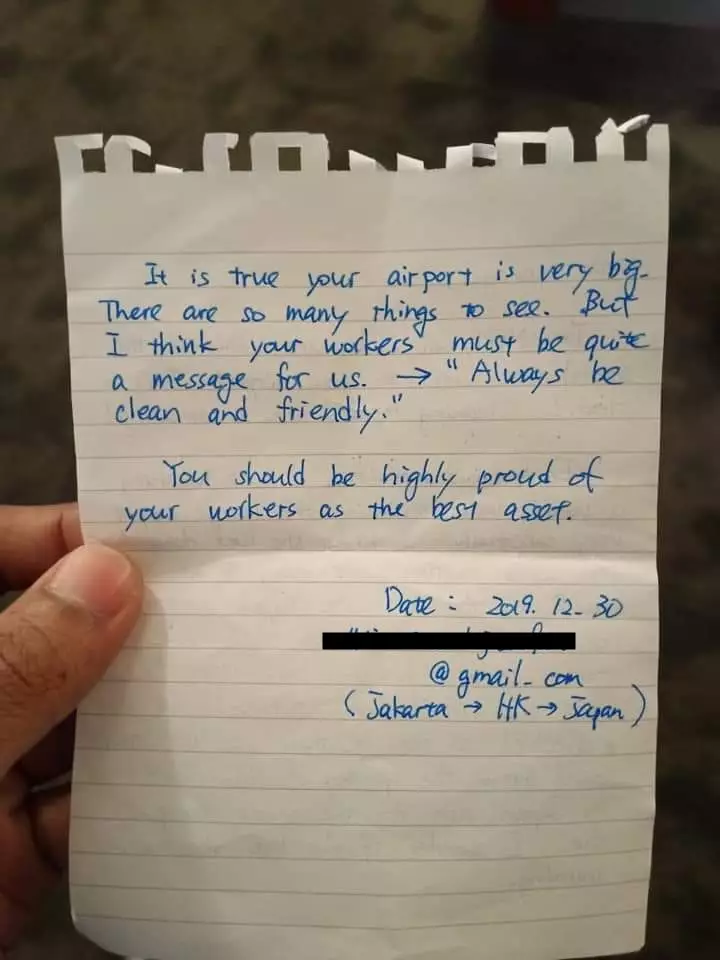 It is true your airport is very big.
There are so many things to see. But
I think your workers must be quite
a message for us. → "Always be
clean and friendly."
You should be highly proud of
your workers as the best asset.
Date : 2019. 12. 30
@gmail.com
(Jakarta → HK → Japan)